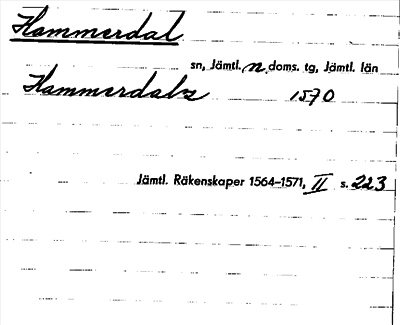 Hammerdal
sn, Jämtl. n. doms. tg, Jämtl. län
Hammerdals 1570
Jämtl. Räkenskaper 1564–1571, II s. 223